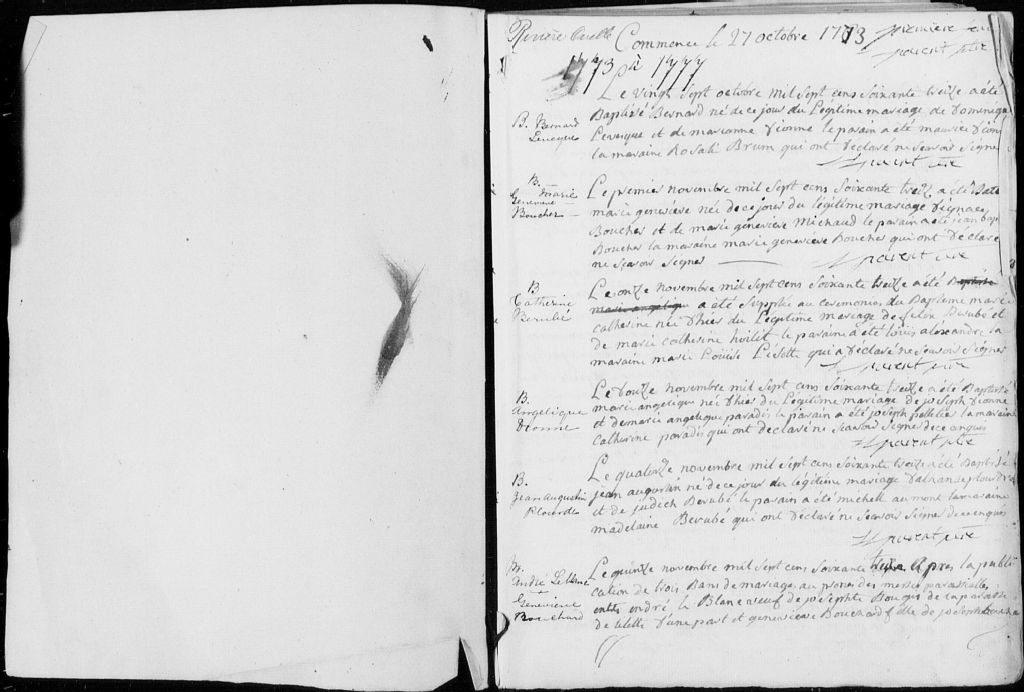 Rivière Ouelle Commence le 27 octobre 1773 première
parent ptre
1773 à 1777
Le vingt sept octobre mil sept cens soixante treize a été
B. Bernard
Leveque
Baptisé Bernard né de ce jour du Légitime mariage de Dominique
Levesque et de marianne Dionne le parain a été maurice Dion
la maraine Rosali Brum qui ont déclaré ne scavoir signer
parent ptre
B.
Marie
Genevieve
Boucher
Le premier novembre mil sept cens soixante treize a été Bate
marie genevieve née de ce jour du légitime mariage d'ignace
Boucher et de marie genevieve Michaud le parain a été jean bap
Boucher la maraine marie genevieve Boucher qui ont déclaré
ne scavoir signer parent ptre
B
Catherine
Berubé
Le onze novembre mil sept cens soixante treize a été Baptisée
marie angelique a été supplée au ceremonies du Baptême marie
catherine née d'hier du Légitime mariage de Berubé et
de marie catherine le parain a été louis alexandre la
maraine marie Louise Lisotte qui a déclaré ne scavoir signer
parent ptre
B.
Angelique
Dionne
Le Douze novembre mil sept cens soixante treize a été Baptisée
marie angelique née d'hier du Légitime mariage de joseph Dionne
et de marie angelique paradis le parain a été joseph pelletier la maraine
Catherine paradis qui ont declaré ne scavoir signer de ce enquis
parent ptre
B.
Jean Augustin
Plourde
Le quatorze novembre mil sept cens soixante treize a été Baptisé
jean augustin né de ce jour du légitime mariage plourde
et de judith Berubé le parain a été michell aumont la maraine
madelaine Berubé qui ont déclaré ne scavoir signer de ce enquis
parent ptre
M.
André Leblanc
et
Genevieve
Bouchard
Le quinze novembre mil sept cens soixante treize apres la publi
cation de trois Bans de mariage au prones des messes paroissialles
entre andré le Blanc veuf de josephte Bouger de la paroisse
de d'une part et genevieve Bouchard fille de joseph boucha